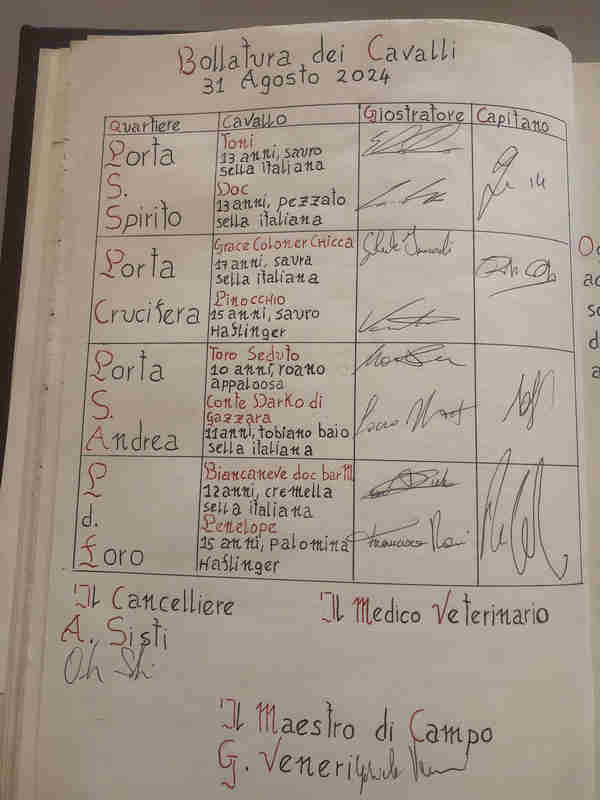 Bollatura dei Cavalli
31 Agosto 2024
Quartiere Cavallo Giostratore Capitano
Porta S. Spirito
Toni
13 anni, sauro
sella italiana
Doc
13 anni, pezzato
sella italiana
Porta Crucifera
Grace Coloner Chicca
17 anni, saura
sella italiana
Pinocchio
15 anni, sauro
Haflinger
Porta S. Andrea
Toro Seduto
10 anni, roano
appaloosa
Conte Darko di
Gazzara
11 anni, tobiano baio
sella italiana
P. d. Foro
Biancaneve doc bar M
12 anni, cremella
sella italiana
Penelope
15 anni, palomina
Haflinger
Il Cancelliere
A. Sisti
Il Medico Veterinario
Il Maestro di Campo
G. Veneri